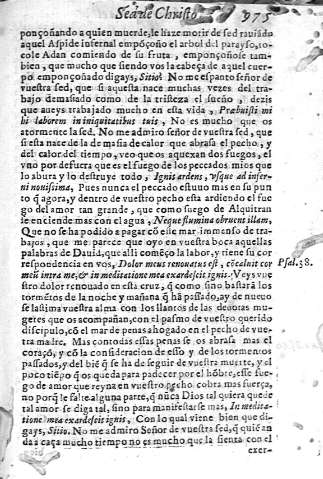 Sed de Christo 975
ponçoñando a quien muerde, le haze morir de sed rauiãdo
aquel Aspide infernal empoçoño el arbol del parayso, to-
cole Adan comiendo de su fruta, emponçoñose tam-
bien, que mucho que siendo vos la cabeça de aquel cuer-
po emponçoñado digays, Sitio. No me espanto señor de
vuestra sed, que si aquesta nace muchas vezes del tra-
bajo demasiado como de la tristeza el sueño, dezis
que aueys trabajado mucho en esta vida, Præbuisti mi
hi laborem in iniquitatibus tuis, No es mucho que os
atormente la sed. No me admiro señor de vuestra sed, que
si esta nace de la demasia de calor que abrasa el pecho, y
del calor del tiempo, veo que os aquexan dos fuegos, el
vno por defuera que es el fuego de los peccados mios que
lo abura y lo destruye todo, Ignis ardens, vsque ad infer-
ni nouissima, Pues nunca el peccado estuuo mas en su pun
to q̃ agora, y dentro de vuestro pecho esta ardiendo el fue
go del amor tan grande, que como fuego de Alquitran
le enciende mas con el agua, Neque flumina obruent illam,
Que no se ha podido apagar cõ esse mar immenso de tra-
bajos, que me parece que oyo en vuestra boca aquellas
palabras de Dauid, que alli comẽço la labor, y tiene su cor
respondencia en vos, Dolor meus renouatus est, cõcaluit cor Psal. 38.
meũ intra me, & in meditatione mea exardescit ignis. Veys vue
stro dolor renouado en esta cruz, q̃ como sino bastarã los
tormẽtos de la noche y mañana q̃ hã passado, ay de nueuo
se lastima vuestra alma con los llantos de las deuotas mu-
geres que os acompañan, con el pasmo de vuestro querido
discipulo, cõ el mar de penas ahogado en el pecho de vue-
stra madre. Mas con todas essas penas se os abrasa mas el
coraçõ, y cõ la consideracion de esso y de los tormentos
passados, y del biẽ q̃ se ha de seguir de vuestra muerte, y el
poco tiẽpo q̃ os queda para padecer por el hõbre, esse fue-
go de amor que reyna en vuestro pecho cobra mas fuerça,
no porq̃ le falte alguna parte, q̃ nũca Dios tal quiera que de
tal amor se diga tal, sino para manifestarse mas, In medita-
tione mea exardescit ignis, Con lo qual viene bien que di-
gays, Sitio. No me admiro Señor de vuestra sed, q̃ quiẽ an
da a caça mucho tiempo no es mucho que la sienta con el
exer-